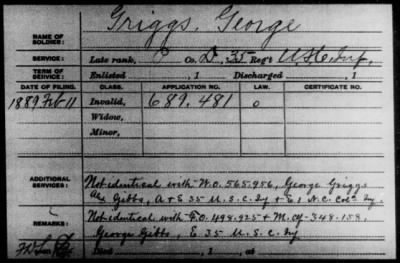 Griggs, George
NAME OF SOLDIER:
SERVICE: Late rank, P Co. D, 35 Reg't U.S.C. Inf,
TERM OF SERVICE: Enlisted , 1 Discharged , 1
DATE OF FILING. CLASS. APPLICATION NO. LAW. CERTIFICATE NO.
1889 Feb 11 Invalid, 689.481 o
Widow,
Minor,
ADDITIONAL SERVICES: Not identical with W.O. 565.956, George Griggs
als Gibbs, A & E 35 U.S.C. Inf & E, 1 N.C. Col
REMARKS: Not identical with 498.925 & M. 348.159,
George Gibbs, E. 35 U.S.C. Inf
Died , 1 , at